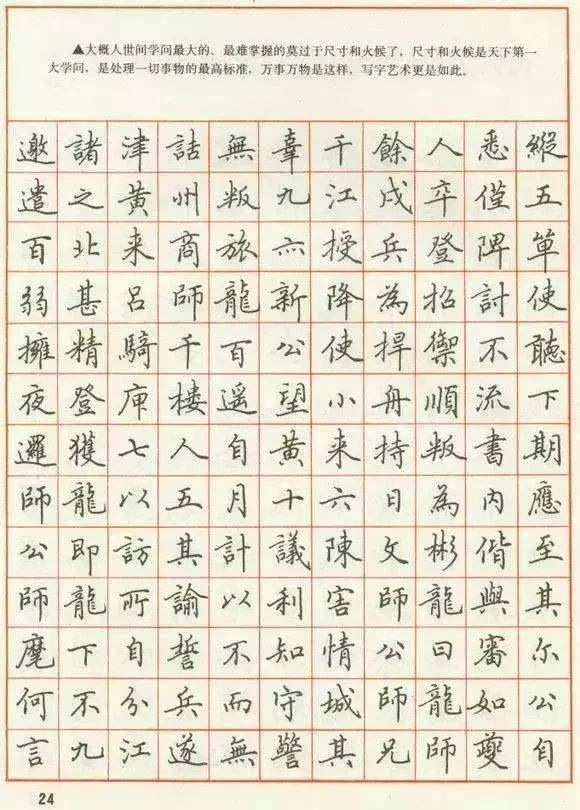 ▲大概人世间学问最大的、最难掌握的莫过于尺寸和火候了，尺寸和火候是天下第一
大学问，是处理一切事物的最高标准，万事万物是这样，写字艺术更是如此。
邀諸津詰無辜千餘人悉縱
遣之黄州叛九江戍卒僅五
百北来商旅亦授兵登陴單
弱甚吕師龍新降為招討使
擁精騎千百公使捍禦不聽
夜登庳樓遥望小舟順流下
邏獲七人自黄来持叛書期
師龍以五月十六日為内應
公即訪其計議陳文彬偕至
師龍所諭以利害師龍與其
麾下自誓不知情公曰審尔
何不分兵而守城師龍如公
言九江遂無警其兄師夔自
24